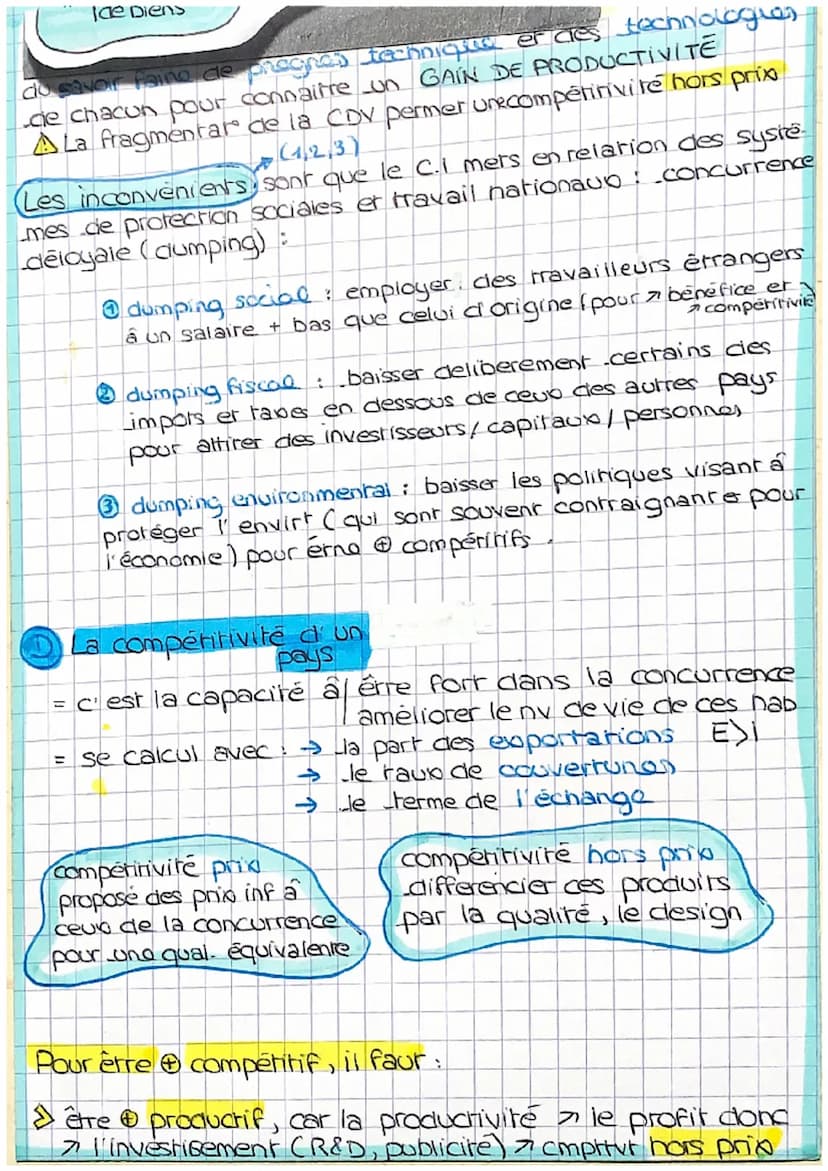 de biens
du savoir faire de progrès technique et des technologies
de chacun pour connaitre un GAIN DE PRODUCTIVITÉ
⚠ La fragmentat° de la CDV permet une compétitivité hors prix
(1,2,3)
Les inconvénients sont que le C.I mets en relation des systè-
mes de protection sociales et travail nationaux : concurrence
déloyale (dumping) :
① dumping social : employer des travailleurs étrangers
à un salaire + bas que celui d'origine (pour ↗ bénéfice et
↗ compétitivité)
② dumping fiscal : baisser deliberement certains des
impots et taxes en dessous de ceux des autres pays
pour attirer des investisseurs / capitaux / personnes
③ dumping environmental : baisser les politiques visant à
protéger l'envirt (qui sont souvent contraignante pour
l'économie) pour êrne ⊕ compétitifs.
D La compétitivité d'un
pays
= c'est la capacité à / être fort dans la concurrence
améliorer le nv de vie de ces hab
= se calcul avec : → la part des exportations E>I
→ le taux de couvertures
→ le terme de l'échange
compétitivité prix
proposé des prix inf à
ceux de la concurrence
pour une qual. équivalente
compétitivité hors prix
differencier ces produits
par la qualité, le design
Pour être ⊕ compétitif, il faut :
> être ⊕ productif, car la productivité ↗ le profit donc
↗ l'investisement (R&D, publicité) ↗ cmpttvt hors prix